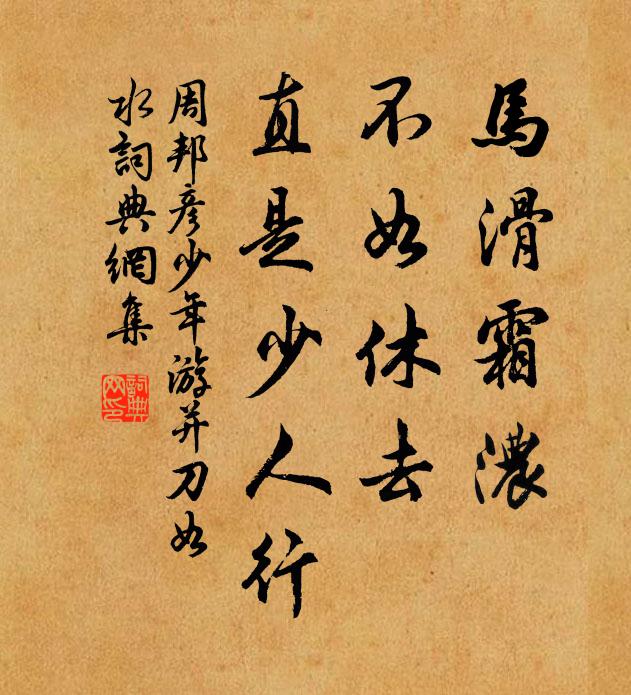 馬滑霜濃
不如休去
直是少人行
周邦彦少年游并刀如
水詞典網集
詞典
网印